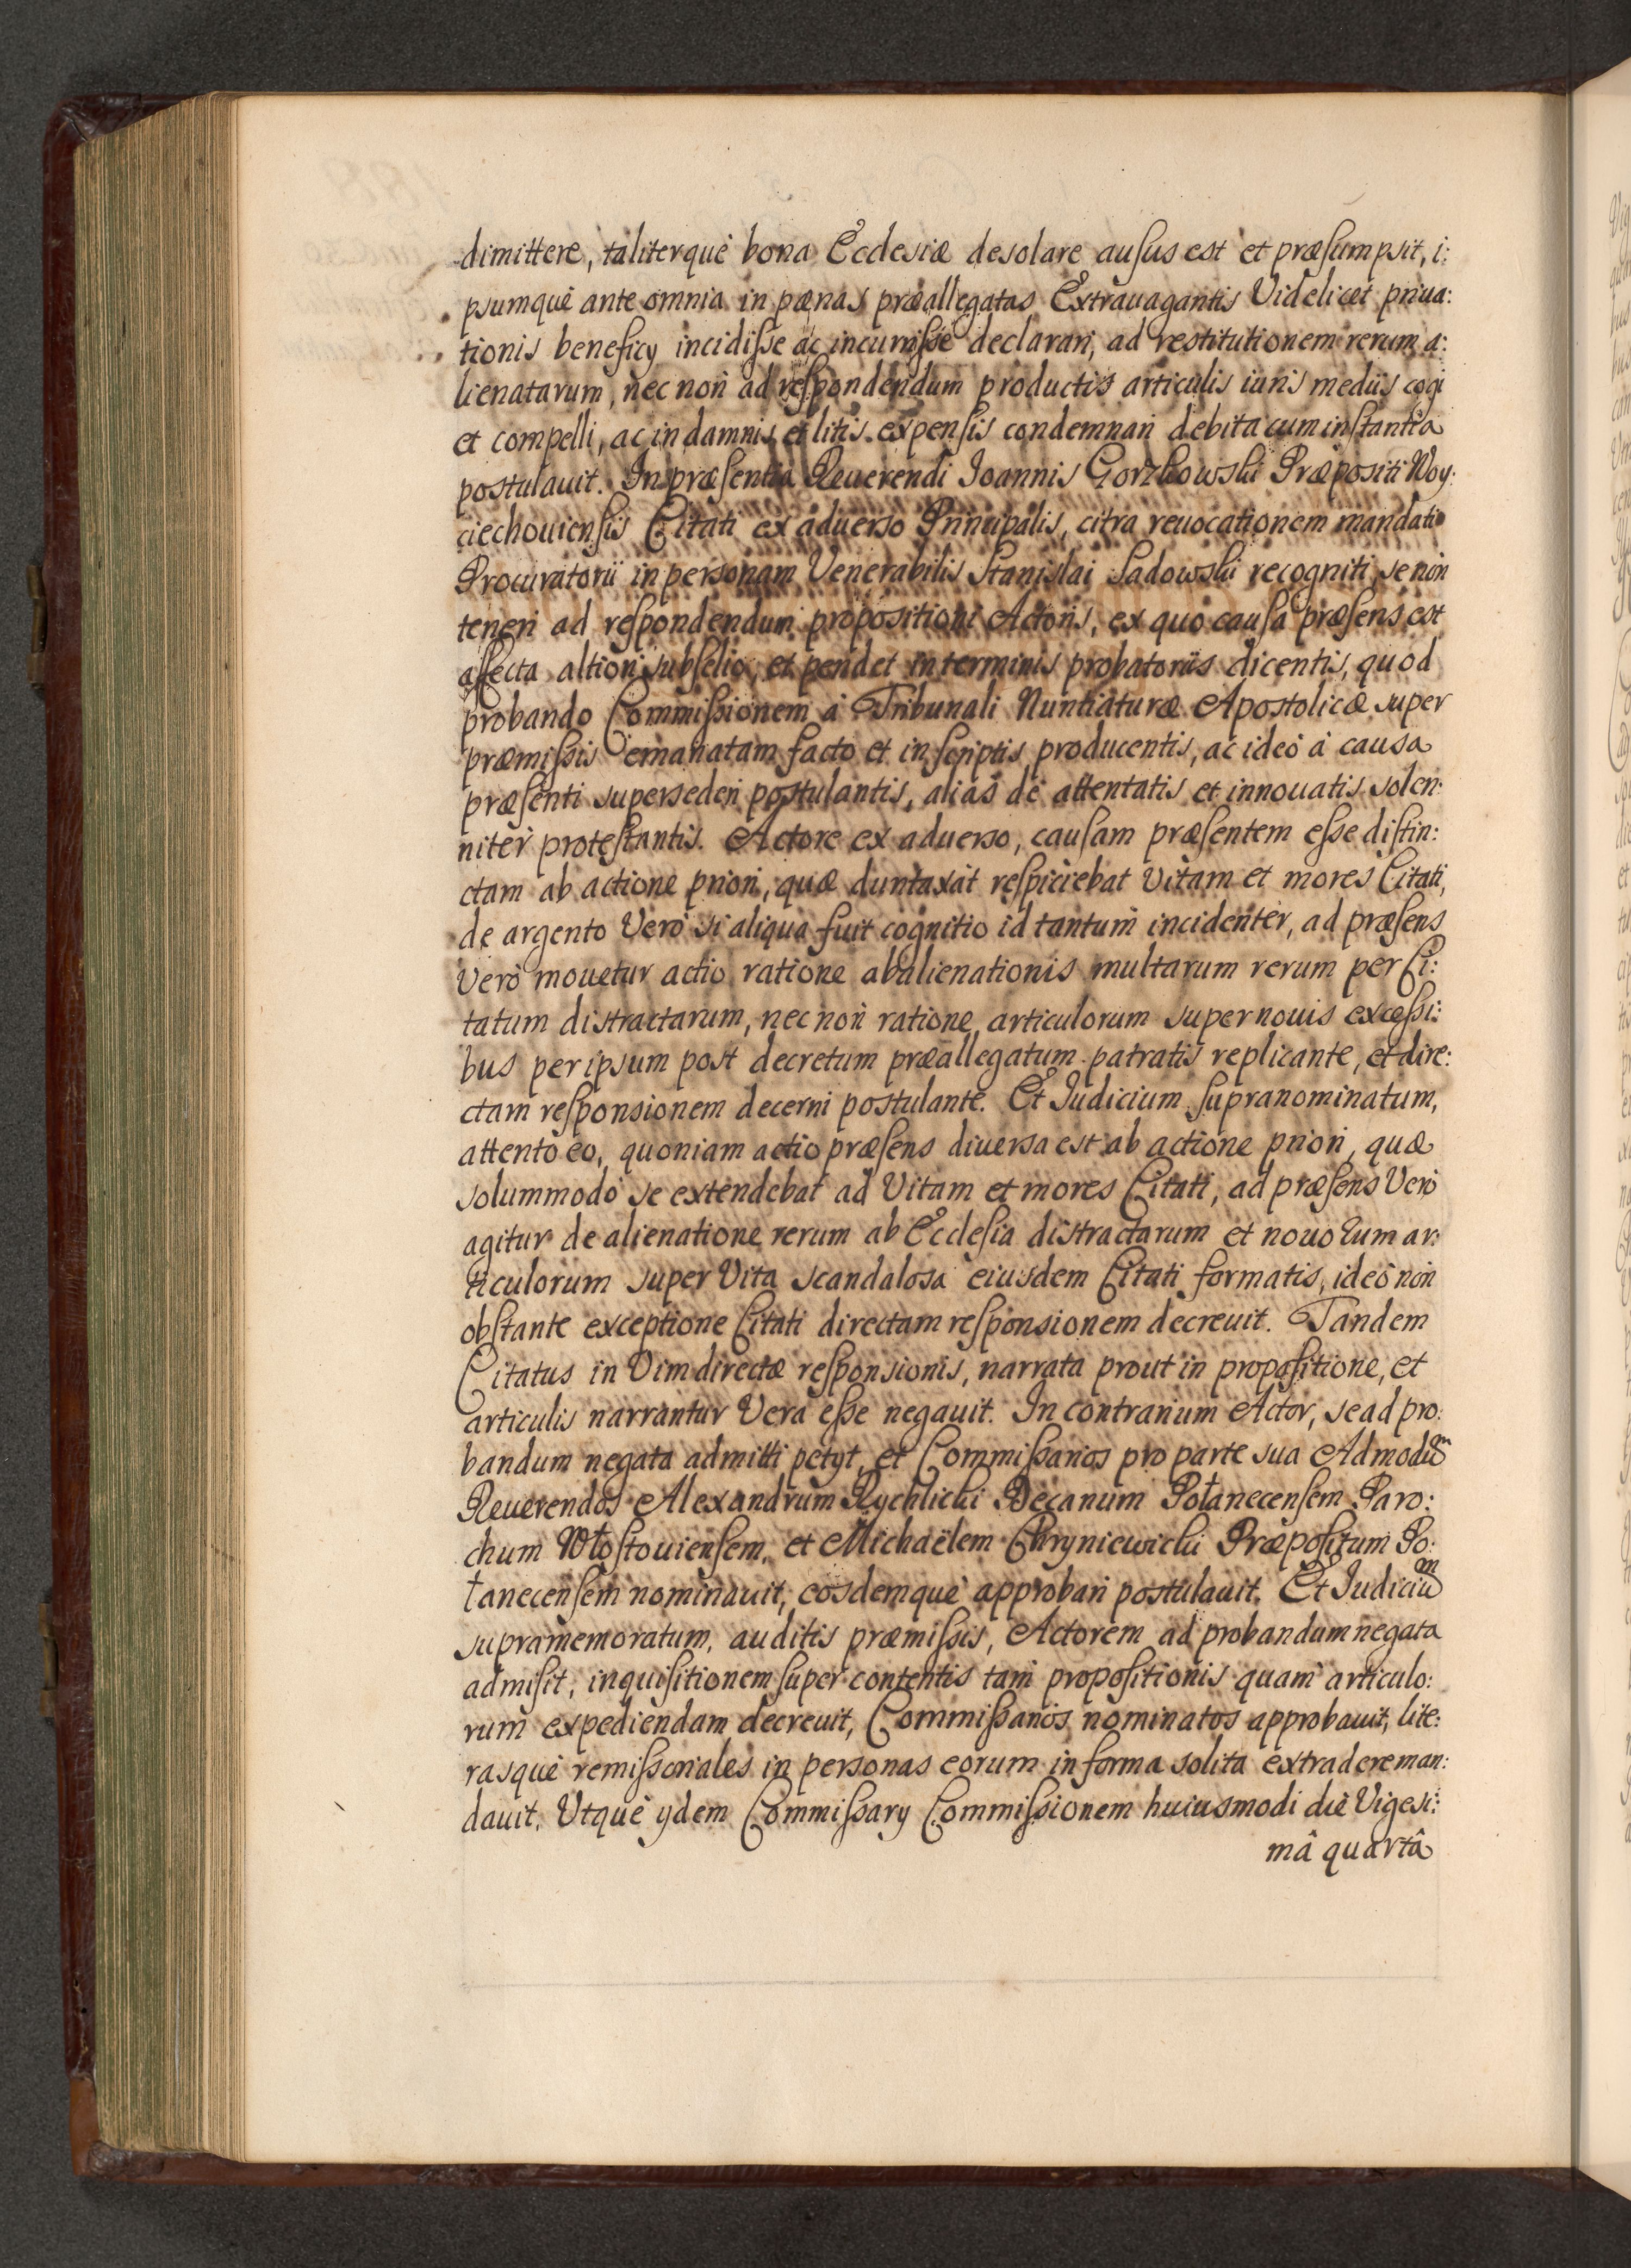 dimittere, taliterquè bona Ecclesiæ desolare ausus est et præsumpsit, i:
psumquè ante omnia in pænas præallegatas Extrauagantis Videlicet priua:
tionis beneficÿ incidisse ac incurrisse declarari, ad restitutionem rerum a:
lienatarum, nec non ad respondendum productis articulis iuris medÿs cogi
et compelli, ac in damnis et litis expensis condemnari debita cum instantia
postulauit. In præsentia Reuerendi Ioannis Gorzkowski Præpositi Woy:
ciechouiensis Citati ex aduerso Principalis, citra reuocationem mandati
Procuratorÿ in personam Venerabilis Stanislai Sadowski recogniti, se non
teneri ad respondendum propositioni Actoris, ex quo causa præsens est
affecta altiori subselio, et pendet in terminis probatorÿs dicentis, quod
probando Commissionem à Tribunali Nuntiaturæ Apostolicæ super
præmissis emanatam facto et in scriptis producentis, ac ideò à causa
præsenti supersederi postulantis, alias de attentatis et innouatis solen:
niter protestantis. Actore ex aduerso, causam præsentem esse distin:
ctam ab actione priori, quæ duntaxàt respiciebat Vitam et mores Citati,
de argento Verò si aliqua fuit cognitio id tantum incidenter, ad præsens
Verò mouetur actio ratione abalienationis multarum rerum per Ci:
tatum distractarum, nec non ratione articulorum super nouis excessi:
bus per ipsum post decretum præallegatum patratis replicante, et dire:
ctam responsionem decerni postulante. Et Iudicium supranominatum,
attento eo, quoniam actio præsens diuersa est ab actione priori, quæ
solummodò se extendebat ad Vitam et mores Citati, ad præsens Verò
agitur de alienatione rerum ab Ecclesia distractarum et nouorum ar:
ticulorum super Vita scandalosa eiusdem Citati formatis, ideò non
obstante exceptione Citati directam responsionem decreuit. Tandem
Citatus in Vim directæ responsionis, narrata prout in propositione, et
articulis narrantur Vera esse negauit. In contrarium Actor, se ad pro:
bandum negata admitti petÿt, et Commissarios pro parte sua Admodum
Reuerendos Alexandrum Rychlicki Decanum Połanecensem Paro:
chum Włostouiensem, et Michaëlem Chryniewicki Præpositum Po:
łanecensem nominauit, eosdemquè approbari postulauit. Et Iudicium
supramemoratum, auditis præmissis, Actorem ad probandum negata
admisit, inquisitionem super contentis tam propositionis quam articulo:
rum expediendam decreuit, Commissarios nominatos approbauit, lite:
rasquè remissoriales in personas eorum in forma solita extradere man:
dauit. Utquè ÿdem Commissarÿ Commissionem huiusmodi die Vigesi:
mâ quartâ